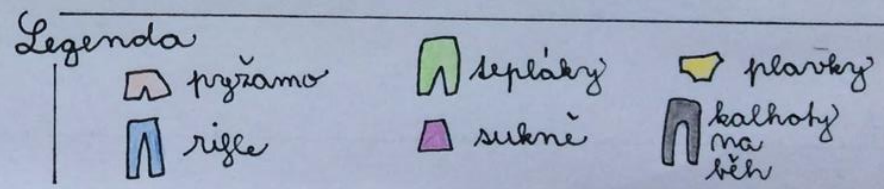 Legenda
pyžamo
tepláky
plavky
rifle
sukně
kalhoty
na
běh